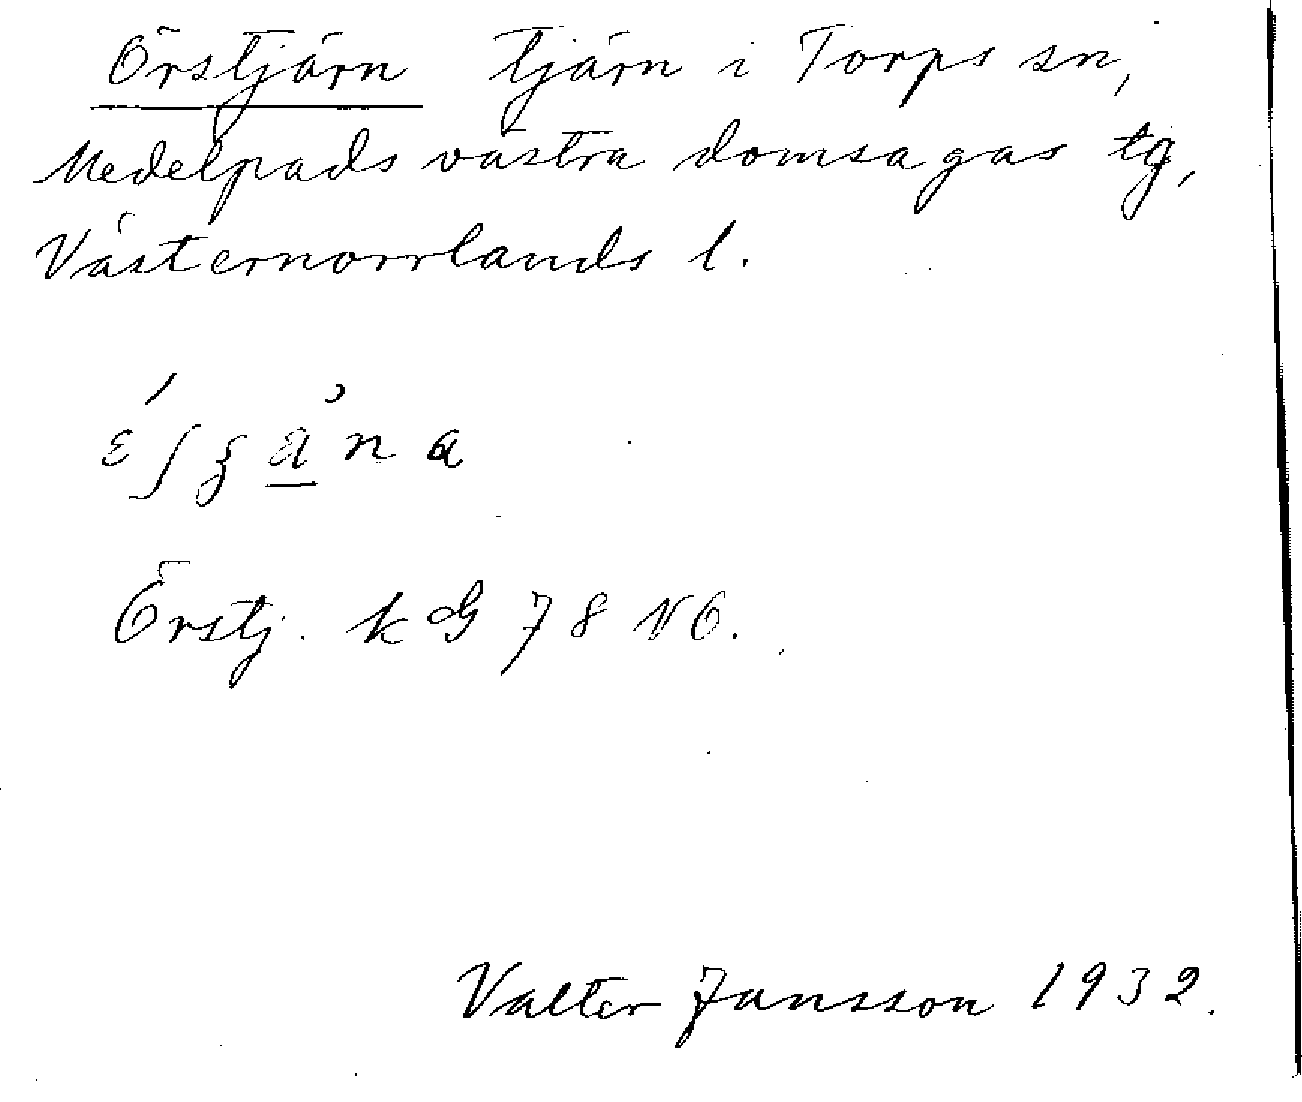 Örstjärn tjärn i Torps sn,
Medelpads västra domsagas tg,
Västernorrlands l.
Örstj. kG 78 NO.
Valter Jansson 1932.